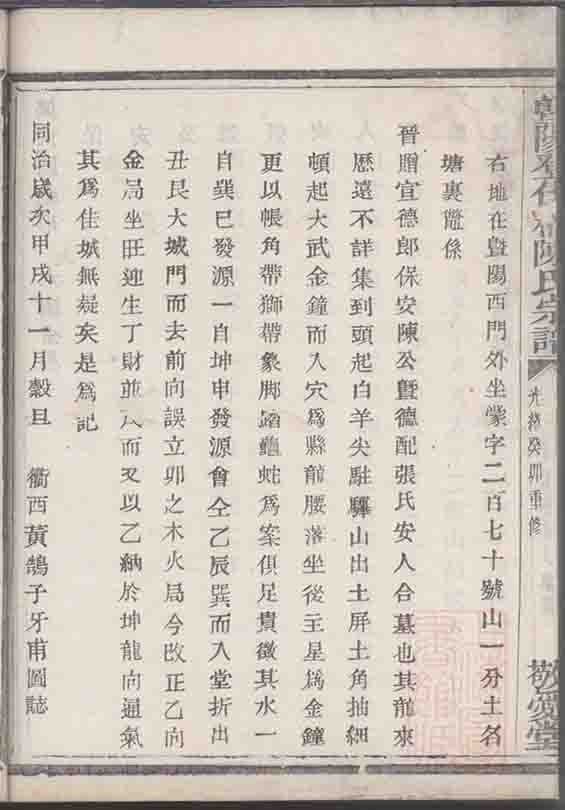 陳氏宗譜 光緒癸卯重修 敬愛堂
右地在暨陽西門外坐蒙字二百七十號山一分土名
塘裏隴係
晉贈宣德郎保安陳公暨德配張氏安人合墓也其龍來
歷遠不詳集到頭起白羊尖駐驆山出土屏土角抽細
頓起大武金鐘而入穴爲縣前腰落坐後主星爲金鐘
更以帳角帶獅帶象脚踏龜蛇爲案俱足貴徵其水一
自巽巳發源一自坤申發源會仝乙辰巽而入堂折出
丑艮大城門而去前向誤立卯之木火局今改正乙向
金局坐旺迎生丁財並入而又以乙納於坤龍向通氣
其爲佳城無疑矣是爲記
同治歲次甲戌十一月穀旦 衢西黃鵠子牙甫圖誌